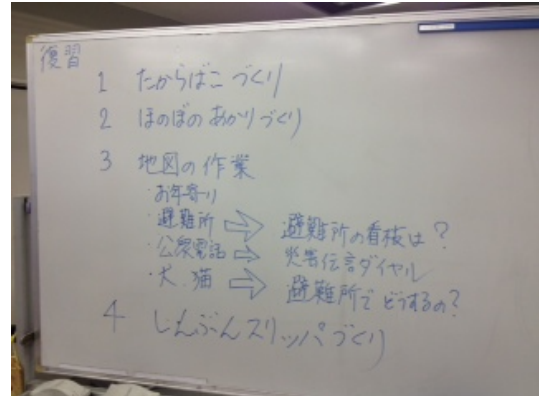 復習
1 たからばこづくり
2 ほのぼのあかりづくり
3 地図の作業
・お年寄り
・避難所 ⇨ 避難所の看板は?
・公衆電話 ⇨ 災害伝言ダイヤル
・犬.猫 ⇨ 避難所でどうするの?
4 しんぶんスリッパづくり